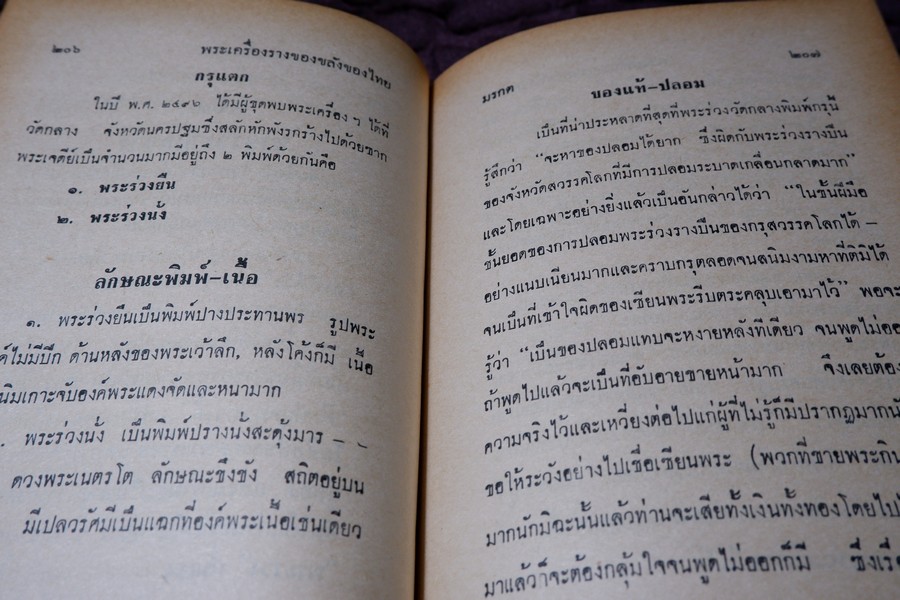 ๒๐๖ พระเครื่องรางของขลังของไทย
กรุแตก
ในปี พ.ศ. ๒๔๙๖ ได้มีผู้ขุดพบพระเครื่อง ๆ ได้ที่
วัดกลาง จังหวัดนครปฐมซึ่งสลักหักพังรกร้างไปด้วยซาก
พระเจดีย์เป็นจำนวนมากมีอยู่ถึง ๒ พิมพ์ด้วยกันคือ
๑. พระร่วงยืน
๒. พระร่วงนั่ง
ลักษณะพิมพ์–เนื้อ
๑. พระร่วงยืนเป็นพิมพ์ปางประทานพร รูปพระ
ค์ไม่มีปีก ด้านหลังของพระเว้าลึก, หลังโค้งก็มี เนื้อ
นิมเกาะจับองค์พระแดงจัดและหนามาก
. พระร่วงนั่ง เป็นพิมพ์ปรางนั่งสะดุ้งมาร – –
ดวงพระเนตรโต ลักษณะขึงขัง สถิตอยู่บน
มีเปลวรัศมีเป็นแฉกที่องค์พระเนื้อเช่นเดียว
มรกต ๒๐๗
ของแท้–ปลอม
เป็นที่น่าประหลาดที่สุดที่พระร่วงวัดกลางพิมพ์กรุนี้
รู้สึกว่า “จะหาของปลอมได้ยาก ซึ่งผิดกับพระร่วงรางปืน
ของจังหวัดสวรรคโลกที่มีการปลอมระบาดเกลื่อนกลาดมาก”
และโดยเฉพาะอย่างยิ่งแล้วเป็นอันกล่าวได้ว่า “ในชั้นฝีมือ
ชั้นยอดของการปลอมพระร่วงรางปืนของกรุสวรรคโลกได้ –
อย่างแนบเนียนมากและคราบกรุตลอดจนสนิมงามหาที่ติมิได้
จนเป็นที่เข้าใจผิดของเซียนพระรีบตระคลุบเอามาไว้” พอจะ
รู้ว่า “เป็นของปลอมแทบจะหงายหลังทีเดียว จนพูดไม่ออ
ถ้าพูดไปแล้วจะเป็นที่อับอายขายหน้ามาก จึงเลยต้อง
ความจริงไว้และเหวี่ยงต่อไปแก่ผู้ที่ไม่รู้ก็มีปรากฏมากนั
ขอให้ระวังอย่างไปเชื่อเซียนพระ (พวกที่ขายพระกิน
มากนักมิฉะนั้นแล้วท่านจะเสียทั้งเงินทั้งทองโดยไป
มาแล้วก็จะต้องกลุ้มใจจนพูดไม่ออกก็มี ซึ่งเรื่